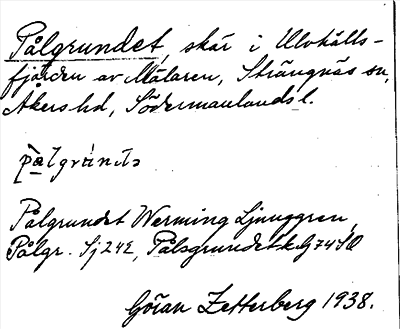 Pålgrundet, skär i Ulvhälls-
fjärden av Mälaren, Strängnäs sn,
Åkers hd, Södermanlands l.
Pålgrundet Werming Ljunggren,
Pålgr. Sj 242, Pålsgrundet k G 74 SO
Göran Zetterberg 1938.